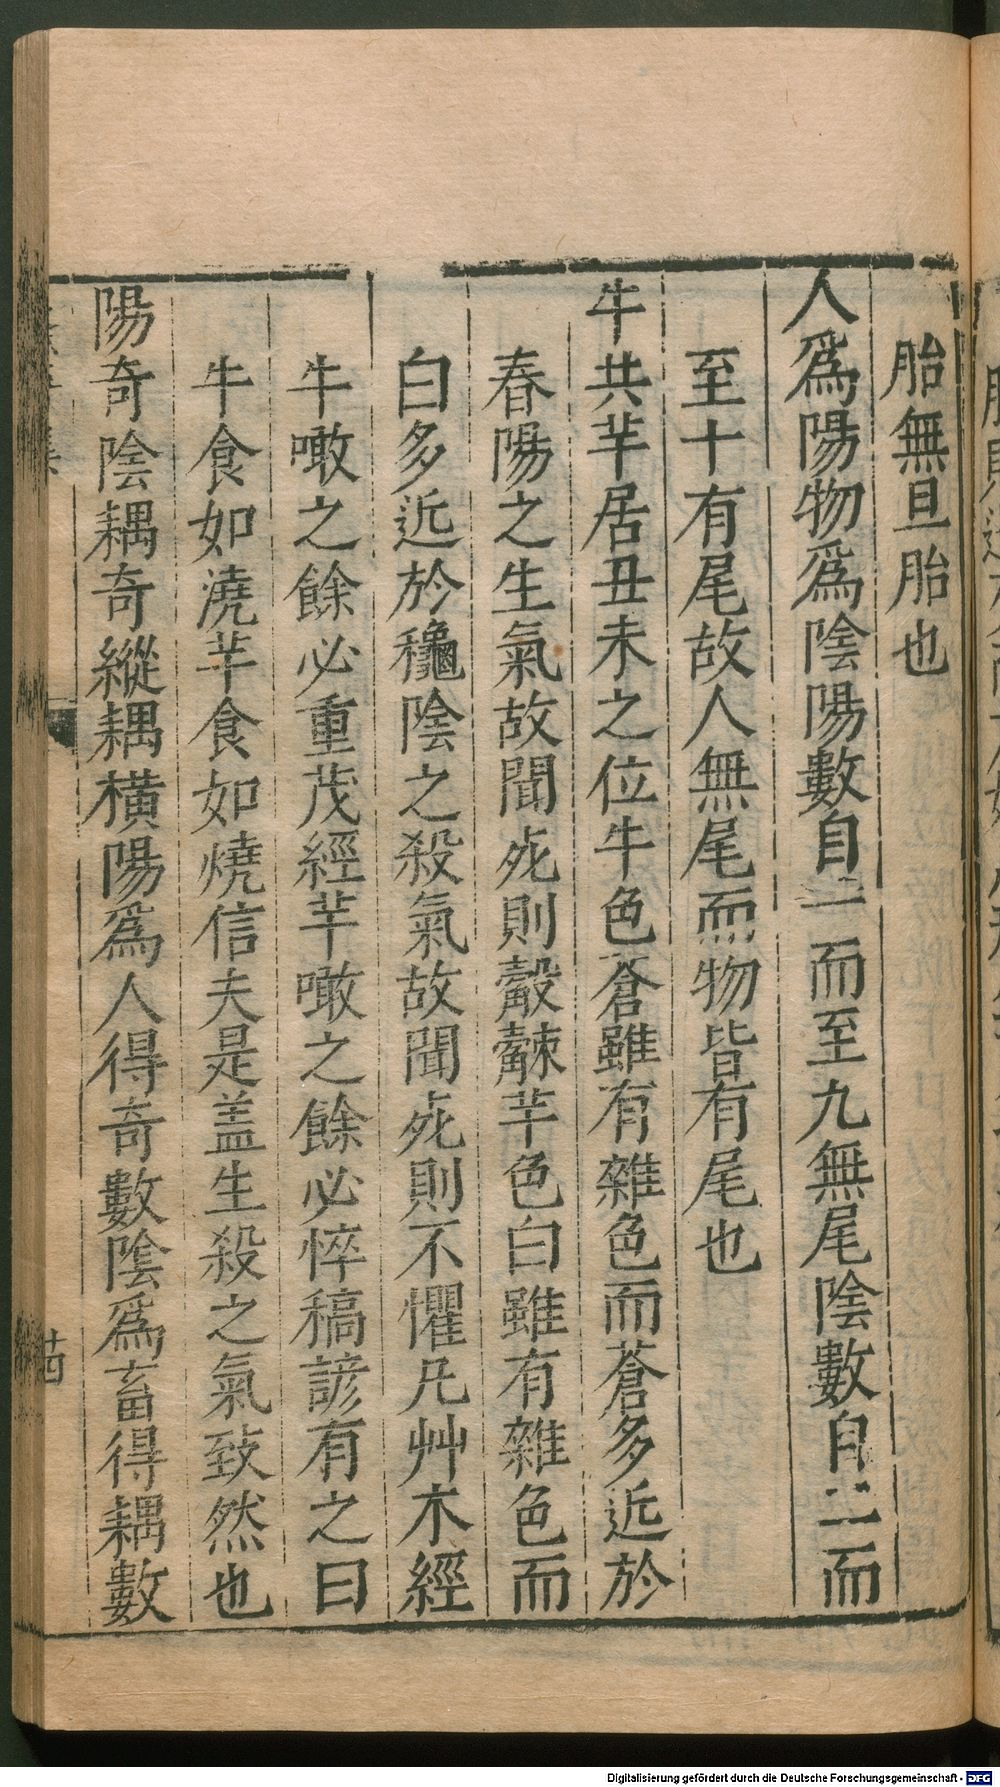 胎無旦胎也
人爲陽物爲陰陽數自一而至九無尾陰數自二而
至十有尾故人無尾而物皆有尾也
牛共羊居丑未之位牛色蒼雖有雜色而蒼多近於
春陽之生氣故聞死則觳觫羊色白雖有雜色而
白多近於龝陰之殺氣故聞死則不懼凡艸木經
牛噉之餘必重茂經羊噉之餘必悴稿諺有之曰
牛食如澆羊食如燒信夫是盖生殺之氣致然也
陽奇陰耦奇縱耦橫陽爲人得奇數陰爲畜得耦數
Digitalisierung gefördert durch die Deutsche Forschungsgemeinschaft - DFG